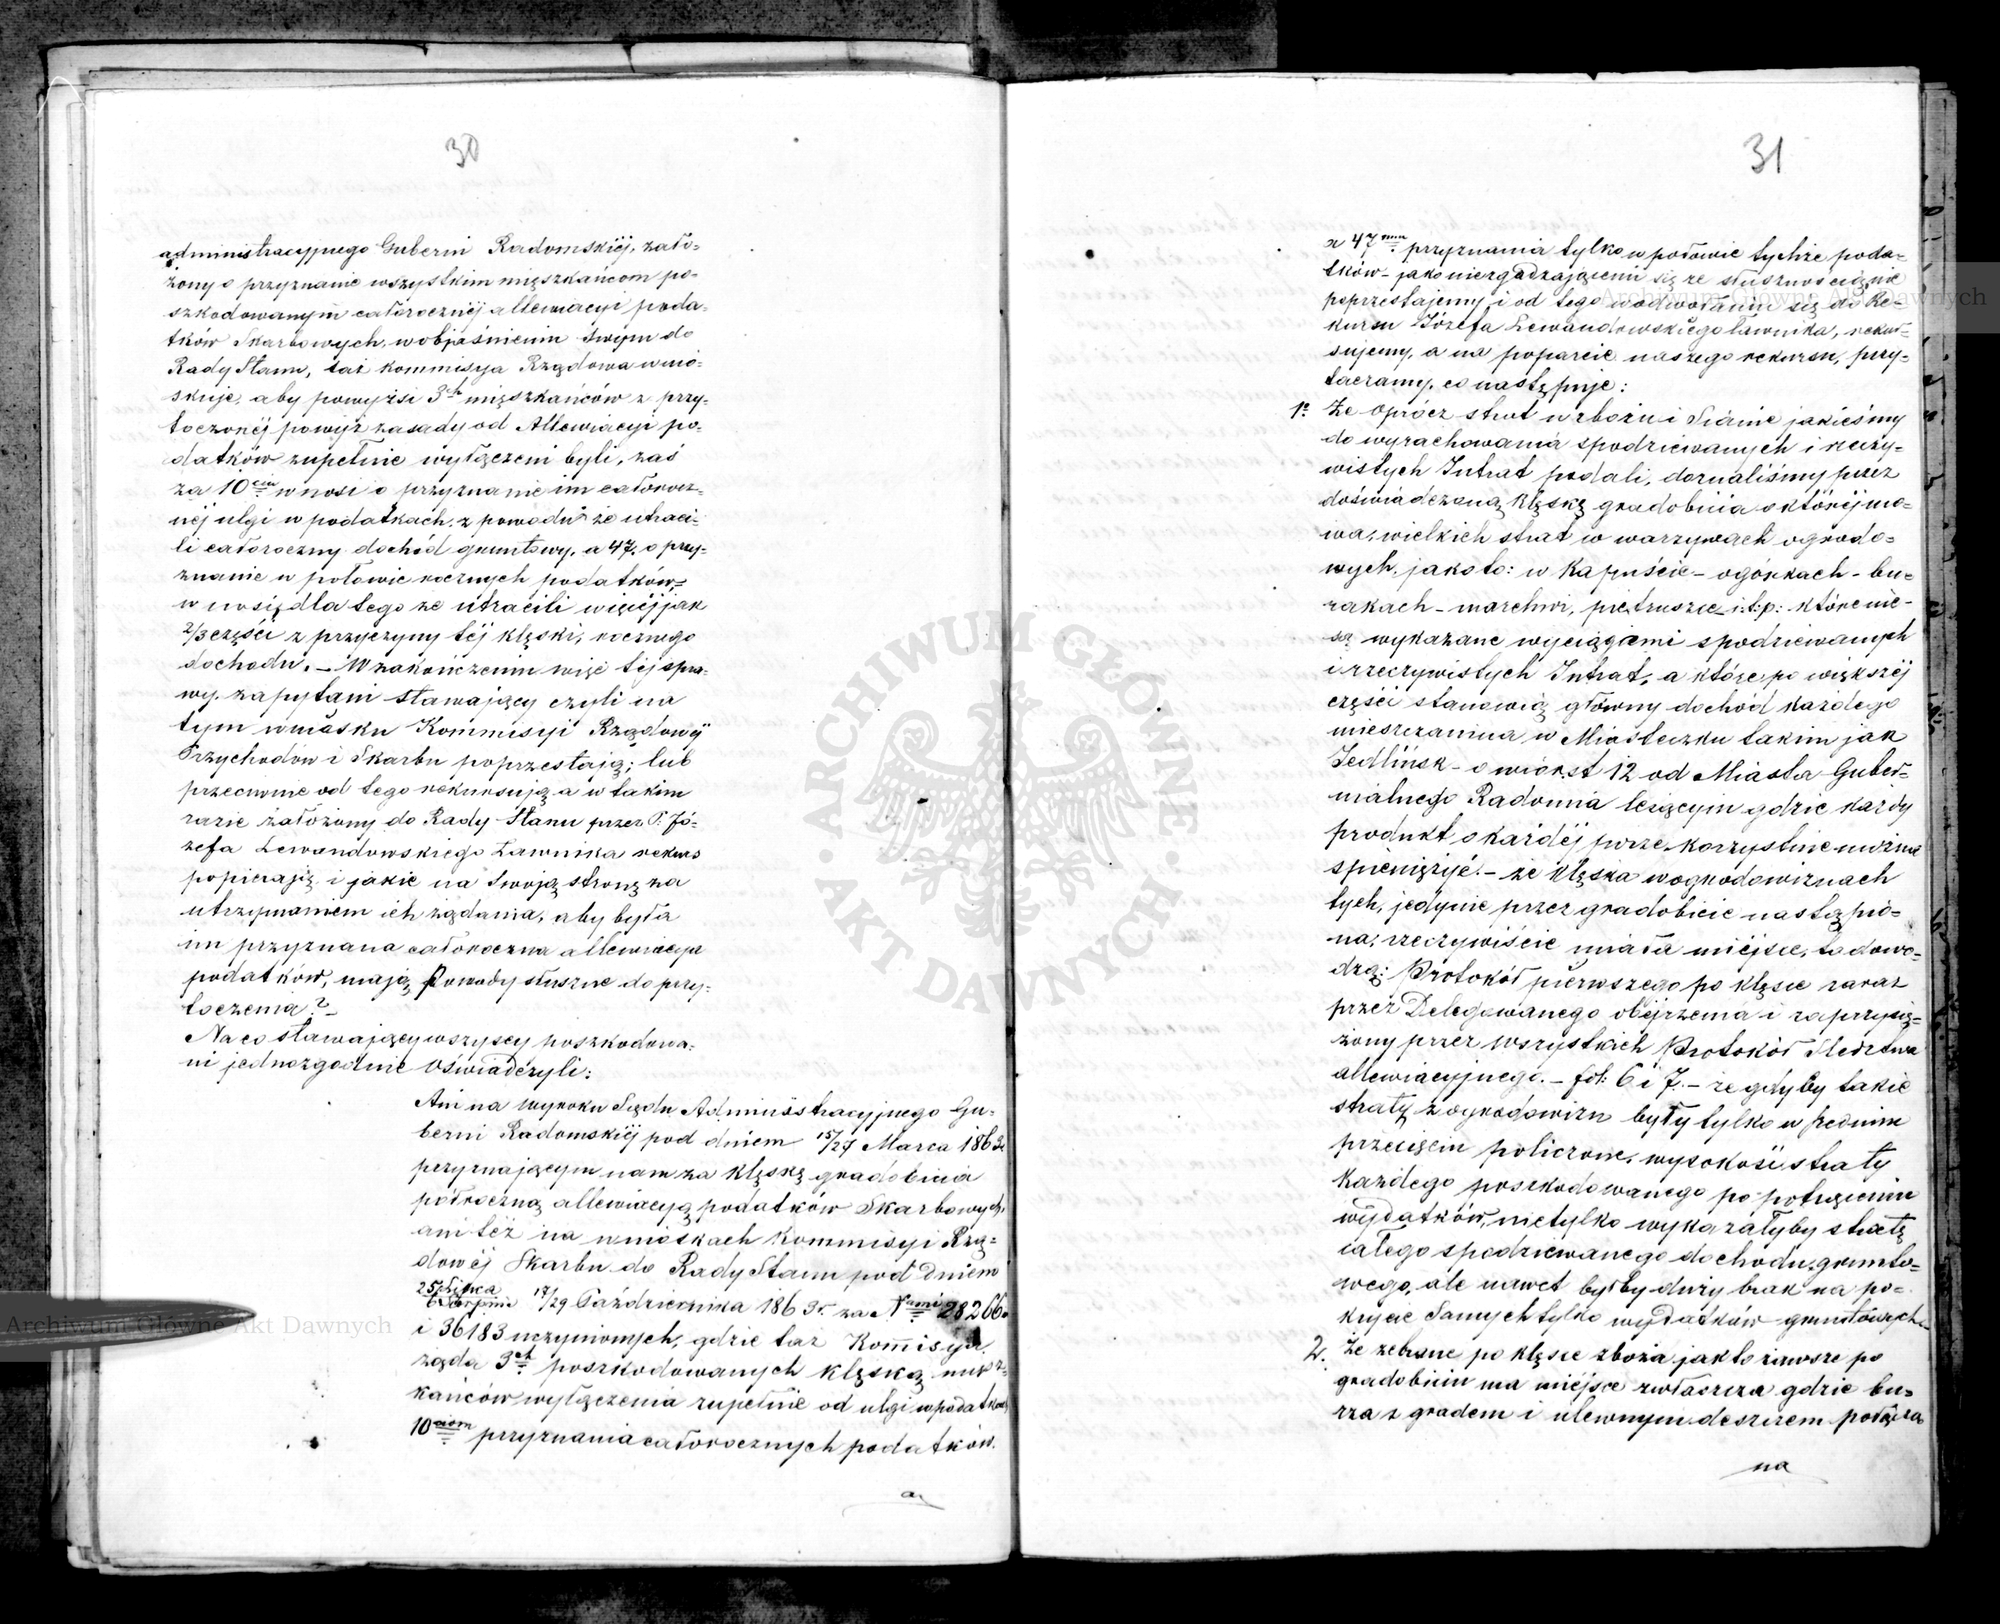 30
administracyjnego Gubernii Radomskiej, zało-
żony o przyznanie wszystkim mieszkańcom po-
szkodowanym całorocznéj allewiacyi poda-
tków Skarbowych, w objaśnieniu swym do
Rady Stanu, taż Kommisya Rządowa wnio-
skuje, aby powyżsi 3ch mieszkańców z przy-
toczonéj powyż zasady od Allewiacyi po-
datków zupełnie wyłączeni byli, zaś
za 10cią wnosi o przyznanie im całorocz-
néj ulgi w podatkach, z powodu że utraci-
li całoroczny dochód gruntowy, a 47. o przy-
znanie w połowie rocznych podatków,
wnosi dla tego że utracili więcéj jak
2/3 części z przyczyny téj klęski, rocznego
dochodu. – W zakończeniu więc téj spra-
wy, zapytani stawający czyli na
tym wniosku Kommisyi Rządowéj
Przychodów i Skarbu poprzestają; lub
przeciwnie od tego rekursują a w takim
razie założony do Rady Stanu przez P. Jó-
zefa Lewandowskiego Ławnika rekurs
popierają i jakie na swoją stronę za
utrzymaniem ich żądania, aby była
im przyznana całoroczna allewiacya
podatków, mają Powody słuszne do przy-
toczenia? –
Na co stawający wszyscy poszkodowa-
ni jednozgodnie oświadczyli:
Ani na wyroku Sądu Administracyjnego Gu-
berni Radomskiéj pod dniem 15/27 Marca 1863r
przyznającym nam za klęskę gradobicia
półroczną allewiacyą podatków Skarbowych,
ani téż na wnioskach Kommisyi Rzą-
dowéj Skarbu do Rady Stanu pod Dniem
25 Lipca
6 Sierpnia 17/29 Października 1863r. za Nrami 28266.
i 36183 uczynionych, gdzie taż Komisya
żąda 3ch poszkodowanych klęską miesz-
kańców wyłączenia zupełnie od ulgi w podatkach
10ciom przyznania całorocznych podatków.
a
31
a 47miu przyznania tylko w połowie tychże poda-
tków – jako niezgadzającemi się ze słusznością nie
poprzestajemy i od tego w odwołaniu się do Re-
kursu Józefa Lewandowskiego Ławnika, rekur-
sujemy, a na poparcie naszego rekursu, przy-
taczamy, co następuje:
1o Że oprócz strat w zbożu i Sianie jakieśmy
do wyrachowania spodziewanych i rzeczy-
wistych Intrat podali, doznaliśmy przez
doświadczoną klęskę gradobicia o któréj mo-
wa, wielkich strat w warzywach ogrodo-
wych, jako to: w kapuście – ogórkach – bu-
rakach – marchwi, pietruszce i:t:p: które nie
są wykazane wyciągiemi spodziewanych
i rzeczywistych Intrat, a które po większéj
części stanowią główny dochód każdego
mieszczanina w Miasteczku takim jak
Jedlińsk – o wiorst 12 od Miasta Guber-
nialnego Radomia leżącym gdzie każdy
produkt o każdéj porze korzystnie można
spieniężyć. – że klęska w ogrodowiznach
tych, jedynie przez gradobicie nastąpio-
na, rzeczywiście miała miéjsce, to dowo-
dzą: Protokół piérwszego po klęsce zaraz
przez Delegowanego obéjrzenia i zaprzysię-
żony przez wszystkich Protokół Śledztwa
allewiacyjnego. – fol: 6 i 7. – że gdyby takie
straty z ogrodowizn były tylko w średnim
przecięciu policzone, wysokość straty
każdego poszkodowanego po potrąceniu
wydatków, nie tylko wykazałyby stratę
całego spodziewanego dochodu grunto-
wego, ale nawet byłby duży brak na po-
krycie samych tylko wydatków gruntowych.
2. Że zebrane po klęsce zboża jak to zawsze po
gradobiciu ma miéjsce zwłaszcza gdzie bu-
rza z gradem i ulewnym deszczem połączona
na